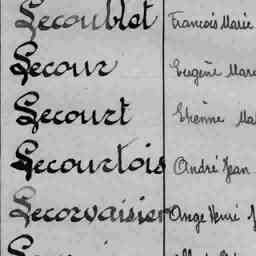 Lecoublet François Marie
Lecour Eugène
Lecourt Etienne
Lecourtois André Jean
Lecorvaisier Ange Henri